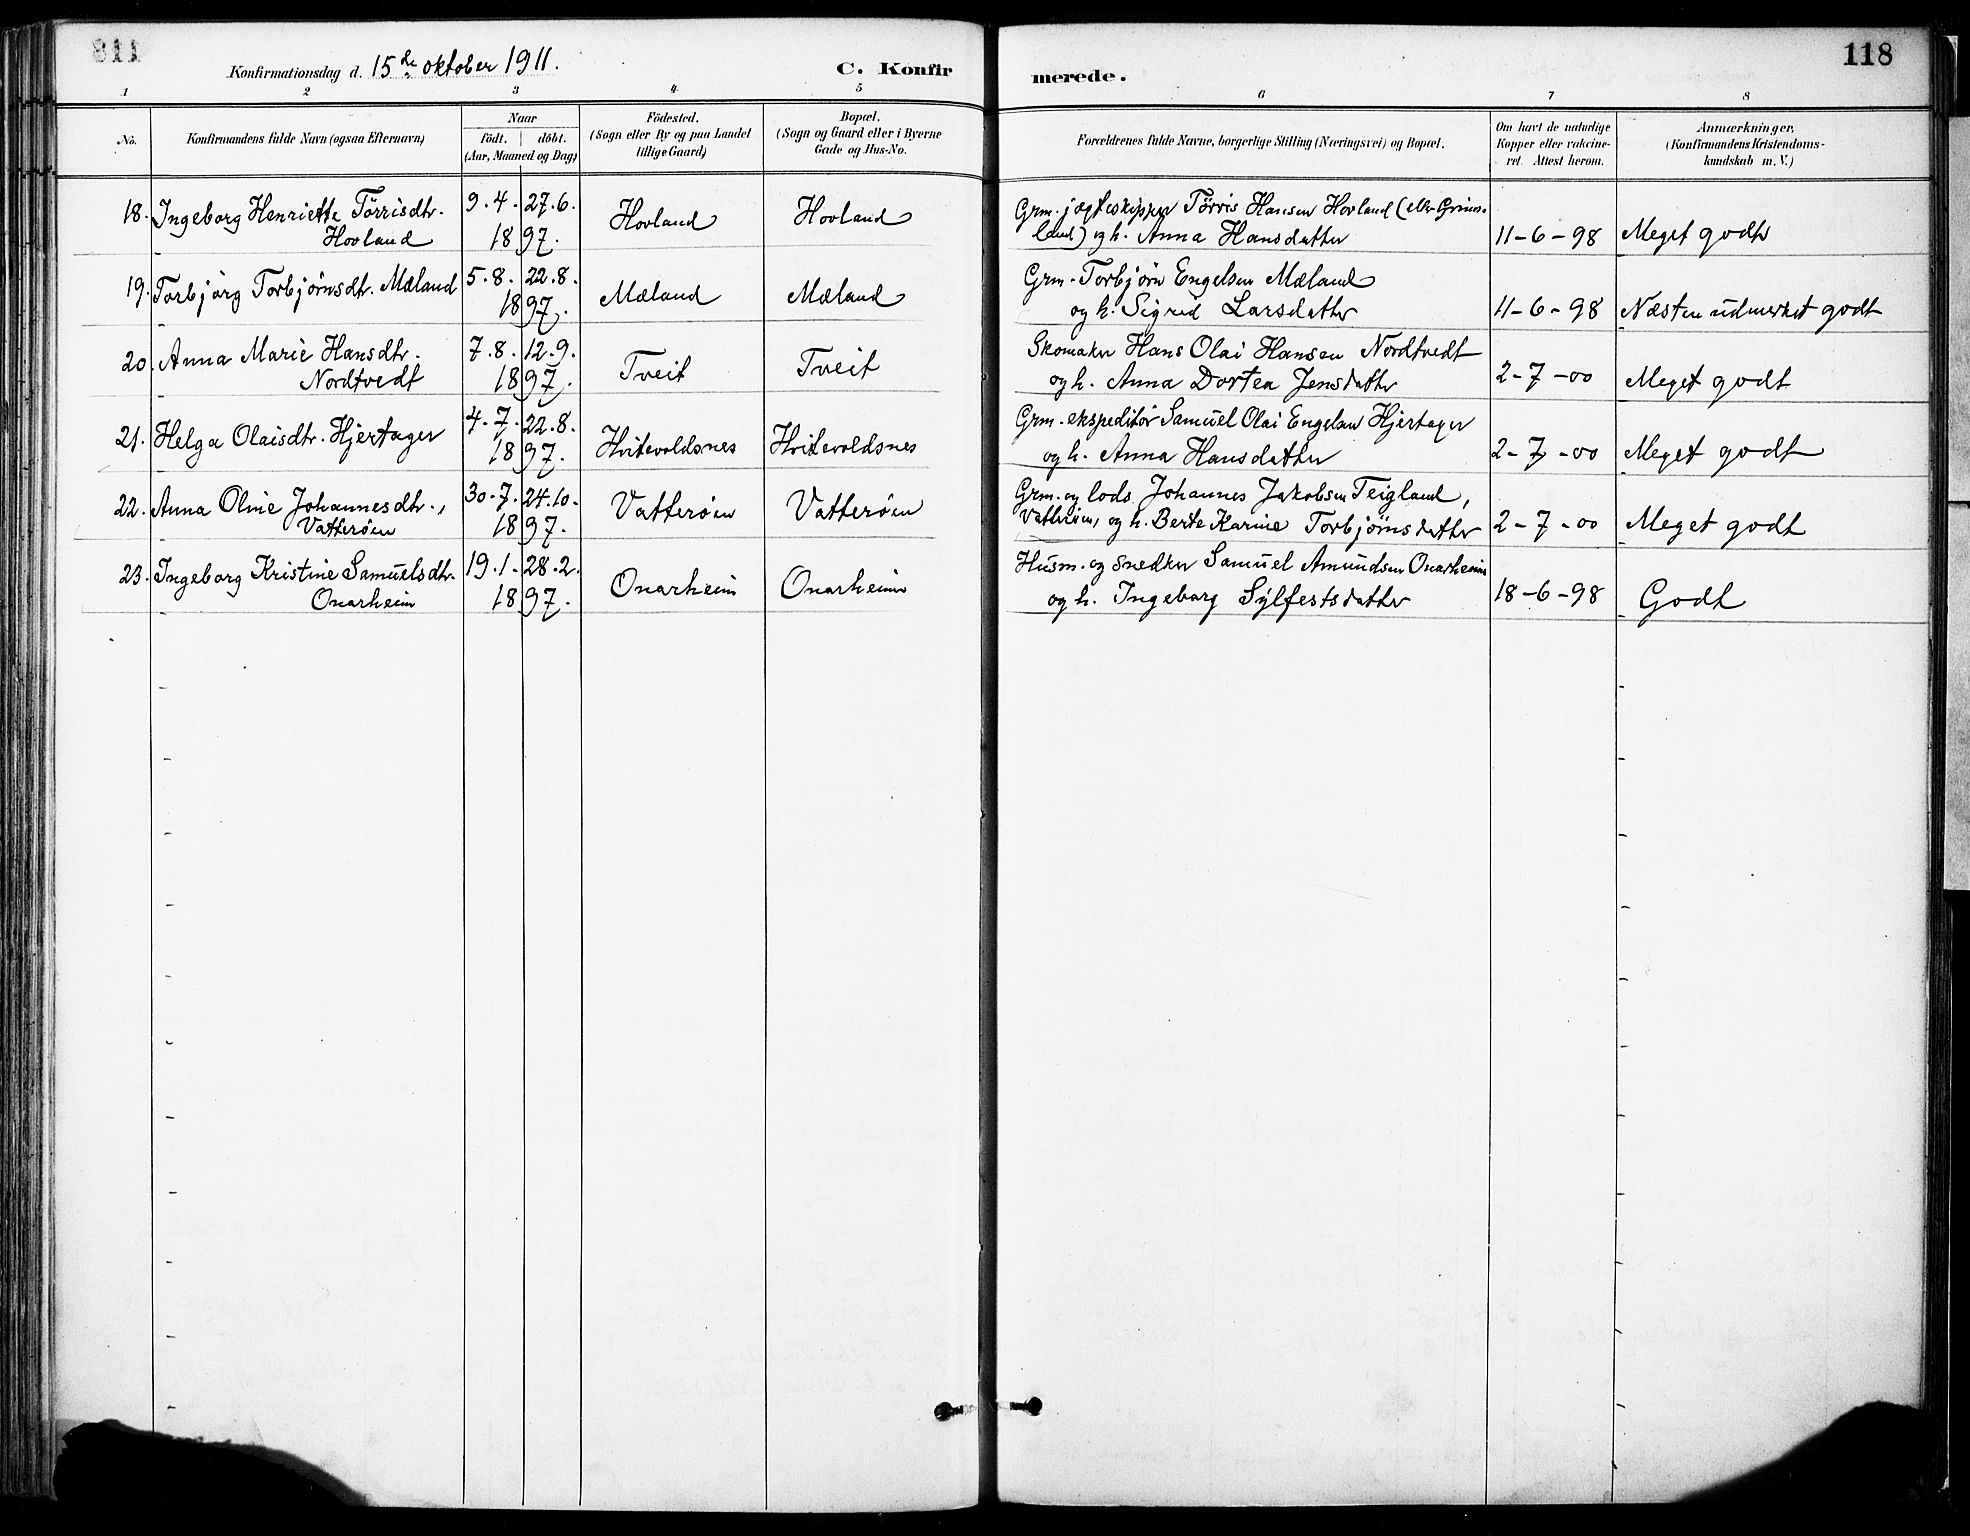 118
Konfirmationsdag d. 15de oktober 1911.
C. Konfirmerede.
118
1 2 3 4 5 6 7 8
No.
Konfirmandens fulde Navn (ogsaa Efternavn)
Naar
født. døbt.
(Aar, Maaned og Dag)
Födested.
(Sogn eller By og paa Landet
tillige Gaard)
Bopæl.
(Sogn og Gaard eller i Byerne
Gade og Hus-No.
Forældrenes fulde Navne, borgerlige Stilling (Næringsvei) og Bopæl.
Om havt de naturlige
Kopper eller vakcine-
ret. Attest herom.
Anmærkninger.
(Konfirmandens Kristendoms-
kundskab m. V.)
18. Ingeborg Henriette Törrisdtr. 9.4. 27.6. Hovland Hovland Grm. jagteskipper Törris Hansen Hovland (eller Grims-
Hovland 1897. land) og h. Anna Hansdatter 11-6-98 Meget godt
19. Torbjørg Torbjørnsdt. Mæland 5.8. 22.8. Mæland Mæland Grm. Torbjørn Engelsen Mæland
1897. og h. Sigrid Larsdatter 11-6-98 Næsten udmerket godt
20. Anna Marie Hansdtr. 7.8. 12.9. Tveit Tveit Skomaker Hans Olai Hansen Nordtvedt
Nordtvedt 1897. og h. Anna Dortea Jensdatter 2-7-00 Meget godt
21. Helga Olaisdtr. Hjertager 4.7. 22.8. Hvitevoldsnes Hvitevoldsnes Grm. ekspeditör Samuel Olai Engelsen Hjertager
1897. og h. Anna Hansdatter 2-7-00 Meget godt
22. Anna Oline Johannesdtr., 30.7. 24.10. Vatterøen Vatterøen Grm. og lods Johannes Jakobsen Teigland,
Vatterøen 1897. Vatterøen, og h. Berte Karine Torbjørnsdatter 2-7-00 Meget godt
23. Ingeborg Kristine Samuelsdtr. 19.1. 28.2. Onarheim Onarheim Husm. og snedker Samuel Amundsen Onarheim
Onarheim 1897. og h. Ingeborg Sylfestsdatter 18-6-98 Godt